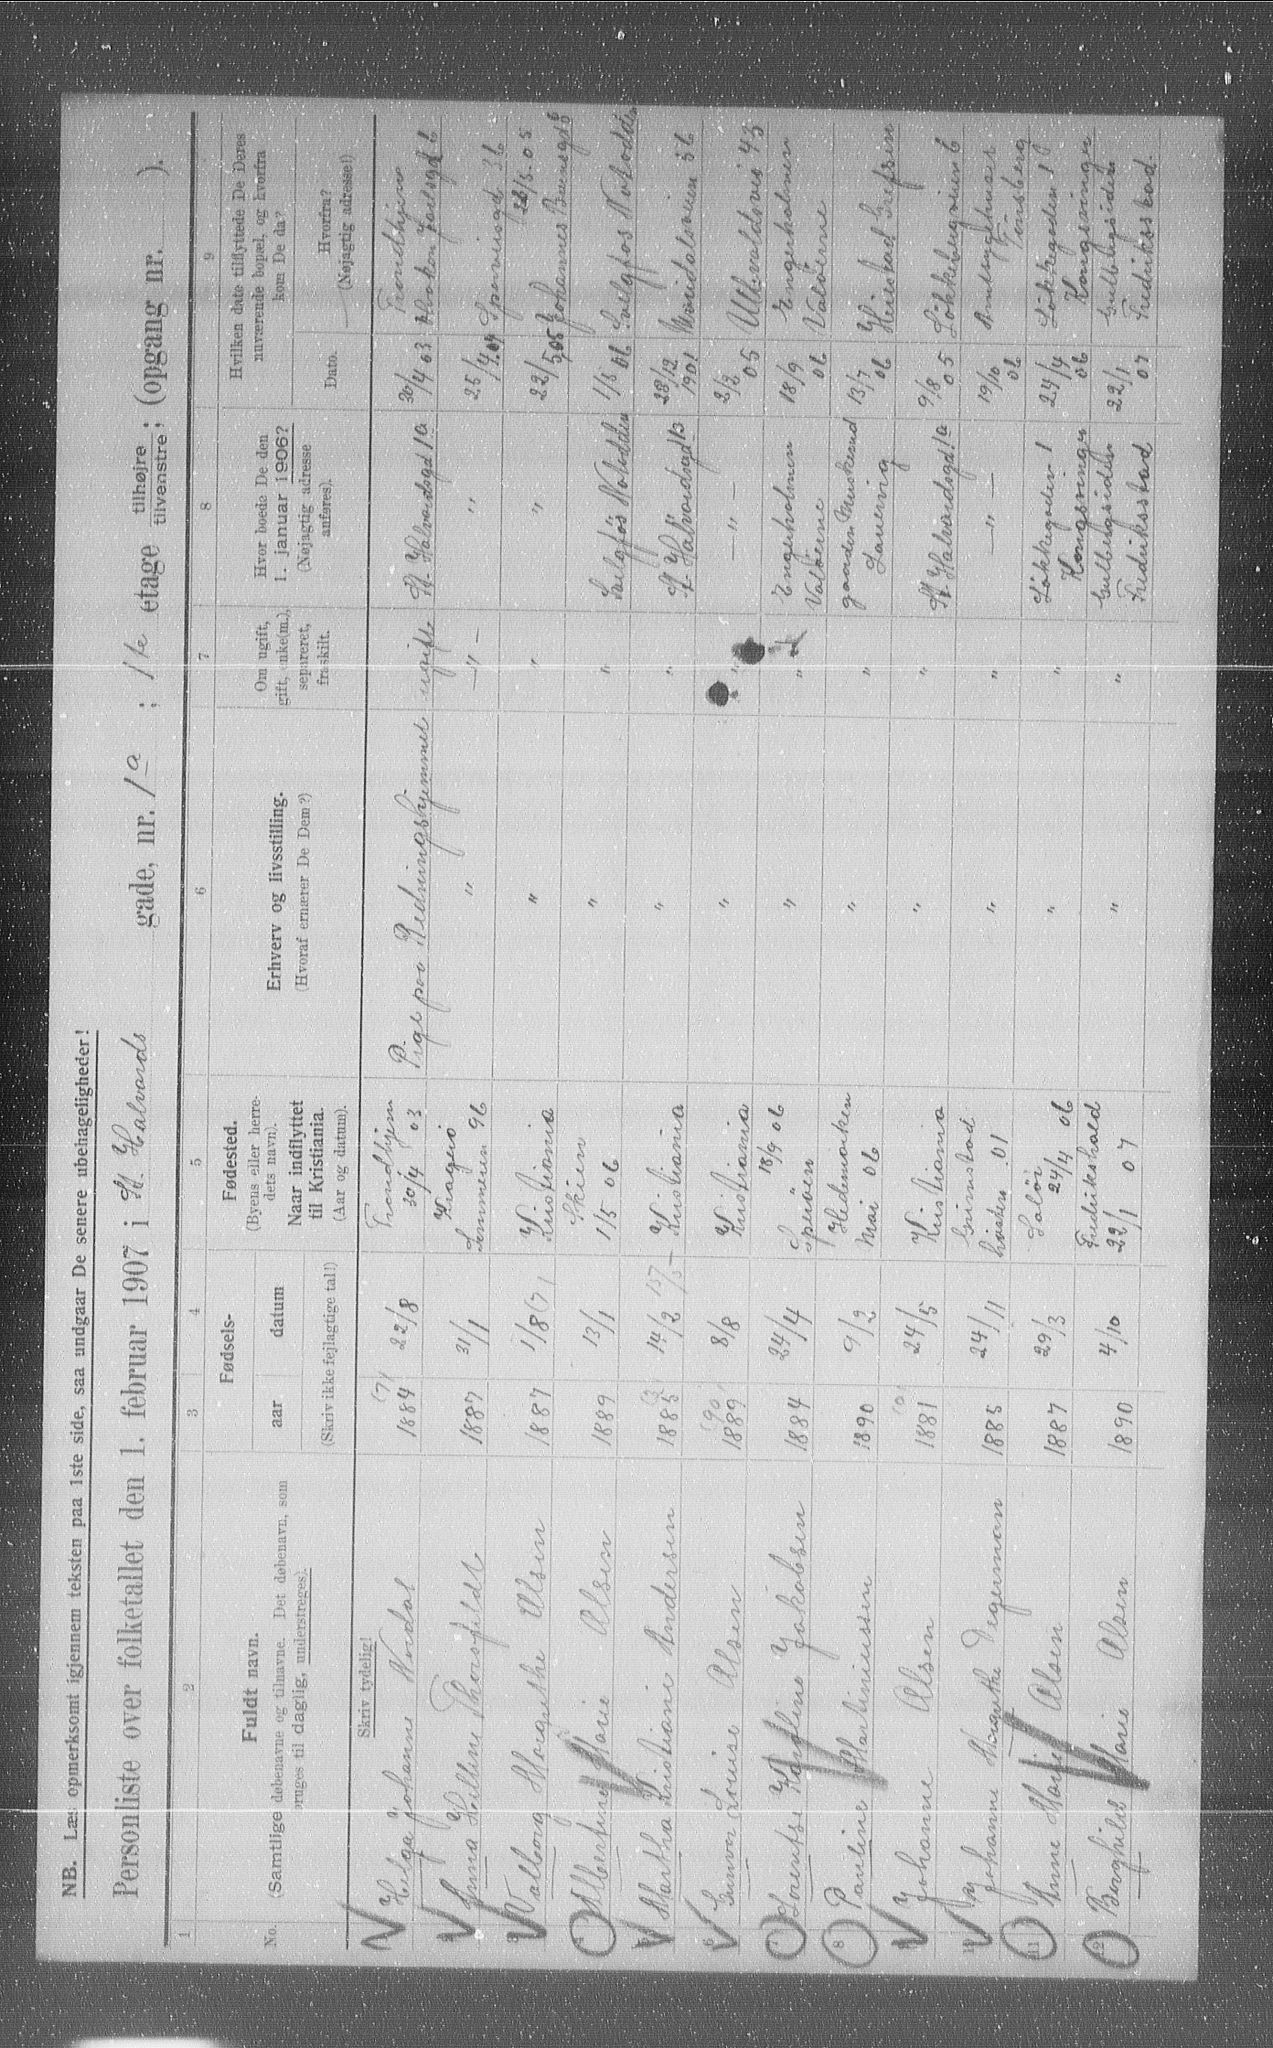 NB. Læs opmerksomt igjennem teksten paa 1ste side, saa undgaar De senere ubehageligheder!
Personliste over folketallet den 1. februar 1907 i St. Halvards gade, nr. 1a ; 1te etage tilhøjre / tilvenstre; (opgang nr. ).
1 2 3 4 5 6 7 8 9
No.
Fuldt navn.
(Samtlige døbenavne og tilnavne. Det døbenavn, som
bruges til daglig, understreges).
Fødsels-
aar datum
(Skriv ikke fejlagtige tal!)
Fødested.
(Byens eller herre-
dets navn).
Naar indflyttet
til Kristiania.
(Aar og datum).
Erhverv og livsstilling.
(Hvoraf ernærer De Dem?)
Om ugift,
gift, enke(m.),
separeret,
fraskilt.
Hvor boede De den
1. januar 1906?
(Nøjagtig adresse
anføres).
Hvilken date tilflyttede De Deres
nuværende bopæl, og hvorfra
kom De da?
Dato.
Hvorfra?
(Nøjagtig adresse!)
Skriv tydelig!
Helga Johanne Nordal 1884 22/8 Trondhjem 30/4 03 Pige paa Redningshjemmet ugift St. Halvardsgd 1a 30/4 03 Trondhjem
Anna Helline 1887 31/1 Kragerø Sommeren 96 " — " — " 25/4 04
Valborg Margrethe Olsen 1887 1/8 Kristiania " " " 22/5 05 Johannes Brunsgd 8
Albertine Marie Olsen 1889 13/1 Skien 1/5 06 " " Notodden 1/5 06 Notodden
Martha Kristiane Andersen 1885 14/2 Kristiania " " St. Halvardsgd 1a 28/12 1901 Maridalsveien 56
Gunvor Louise Olsen 1889 8/8 Kristiania " " — " — 2/3 05 Ullevoldsvei 43
7 Lorentse Karoline Jakobsen 1884 24/4 18/9 06 " " Engerholmen Valøerne 18/9 06 Engerholmen Valøerne
8 Pauline Martiniussen 1890 9/2 Hedemarken Mai 06 " " 13/7 06 Grefsen
Johanne Olsen 1881 24/5 Kristiania " " St. Halvardsgd. 1a 9/8 05 Løkkebergveien 6
10 Johanne Margrethe Degerman 1885 24/11 Grimstad høsten 01 " " — " — 19/10 06 Amtssygehuset Tønsberg
11 Anne Marie Olsen 1887 29/3 Solør 24/4 06 " " Løkkegaden 1 Kongsvinger 24/4 06 Løkkegaden 1 Kongsvinger
12 Borghild Marie Olsen 1890 4/10 Fredrikshald 22/1 07 " " Fredriksstad 22/1 07 Fredriksstad.